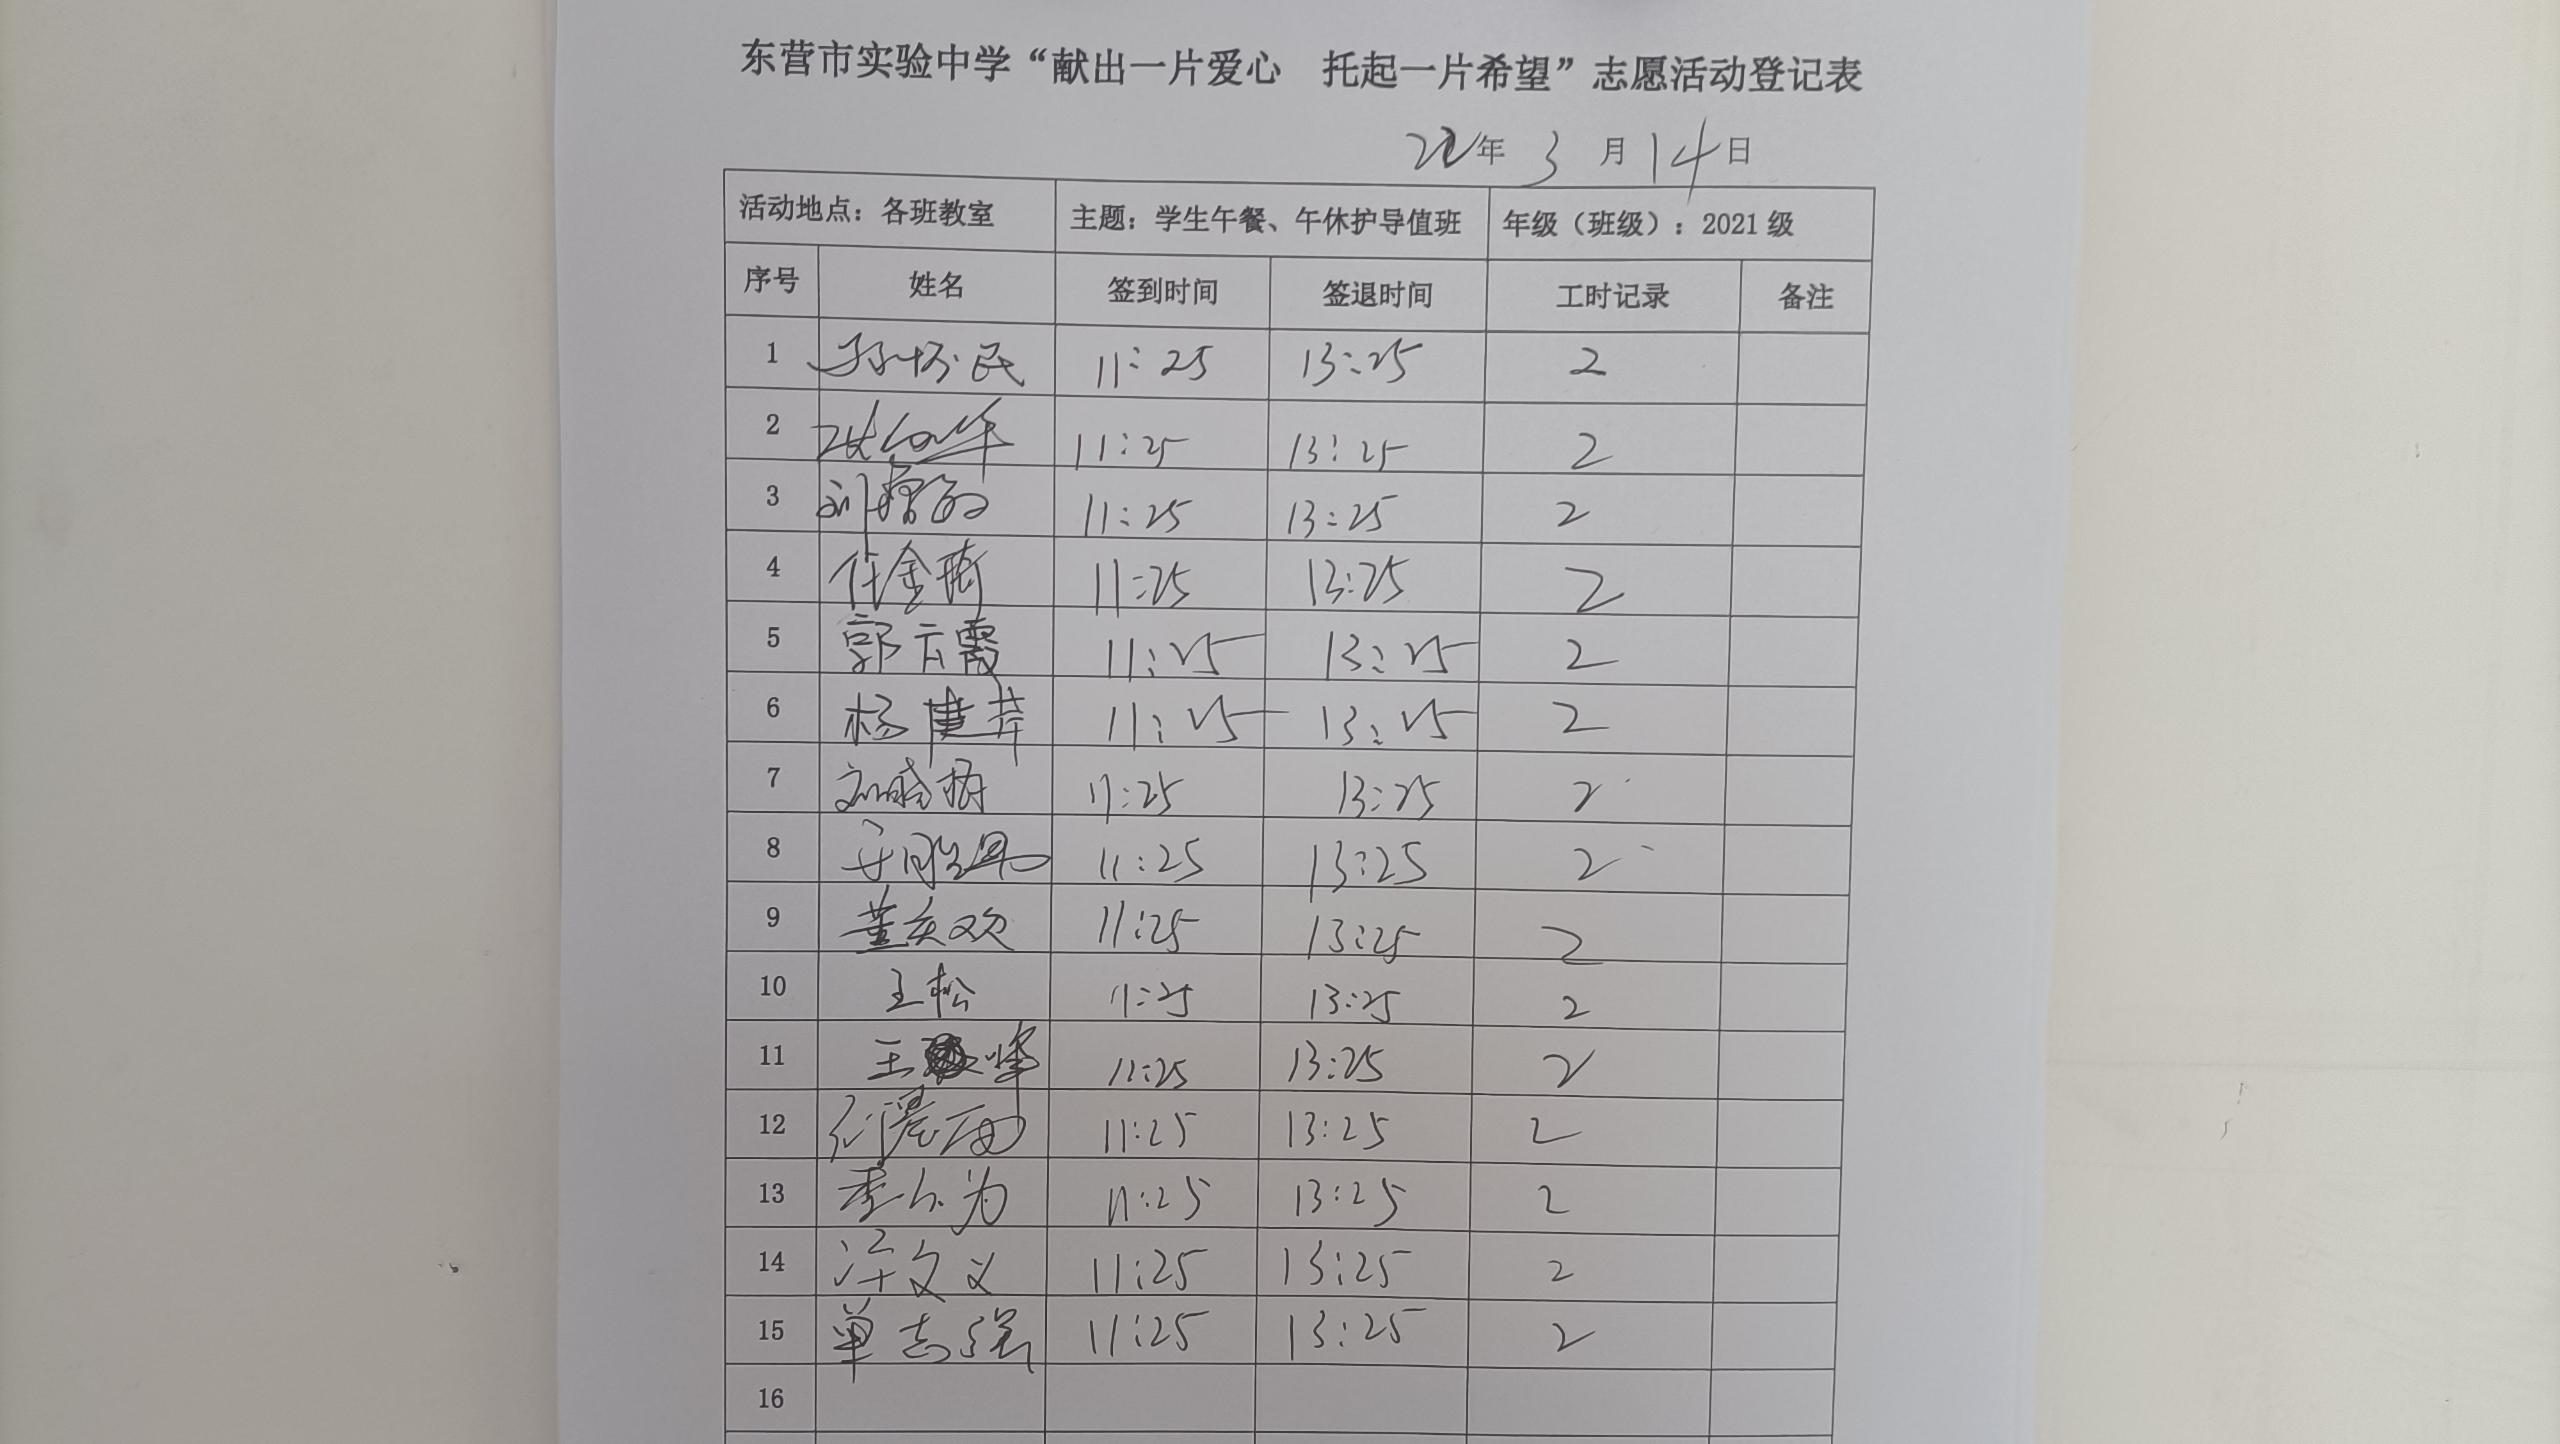 东营市实验中学“献出一片爱心 托起一片希望”志愿活动登记表
22年 3 月 14 日
活动地点：各班教室 主题：学生午餐、午休护导值班 年级（班级）：2021 级
序号 姓名 签到时间 签退时间 工时记录 备注
1 民 11:25 13:25 2
2 11:25 13:25 2
3 刘 11:25 13:25 2
4 任金 11:25 13:25 2
5 郭云霞 11:25 13:25 2
6 杨建萍 11:25 13:25 2
7 刘 11:25 13:25 2
8 11:25 13:25 2
9 董庆欢 11:25 13:25 2
10 王松 11:25 13:25 2
11 王 峰 11:25 13:25 2
12 11:25 13:25 2
13 为 11:25 13:25 2
14 文义 11:25 13:25 2
15 单志强 11:25 13:25 2
16